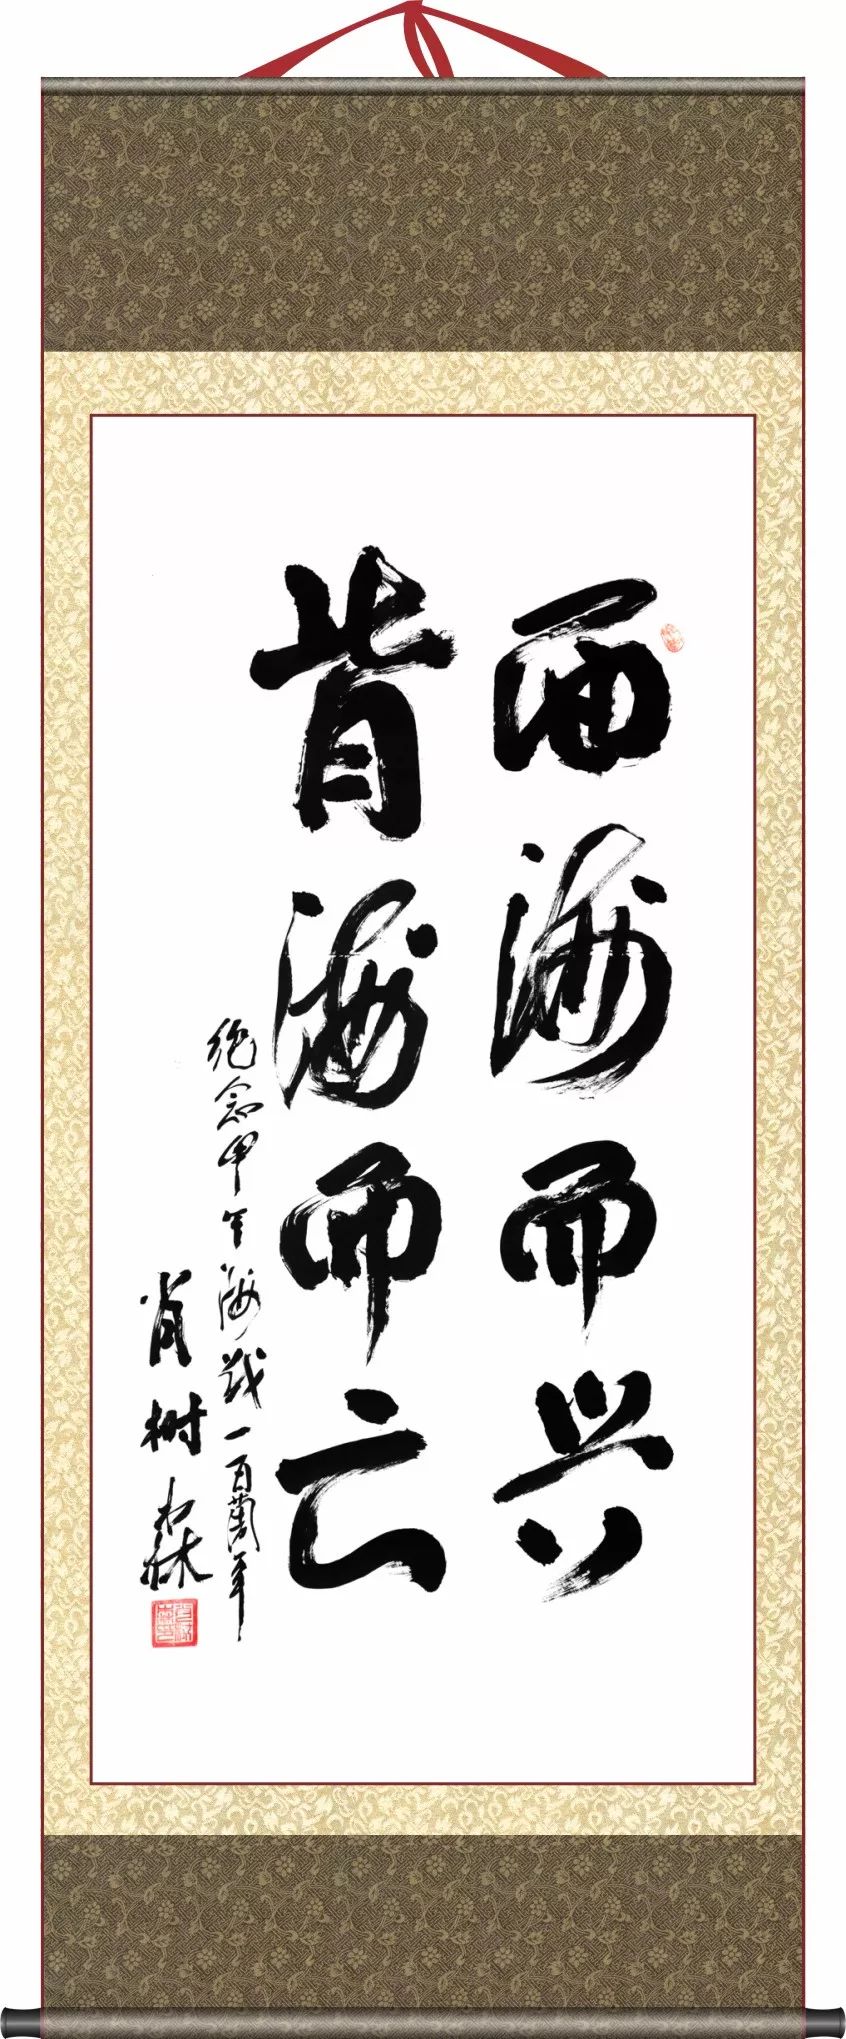 面海而兴
背海而亡
纪念甲午海战一百周年
肖树森